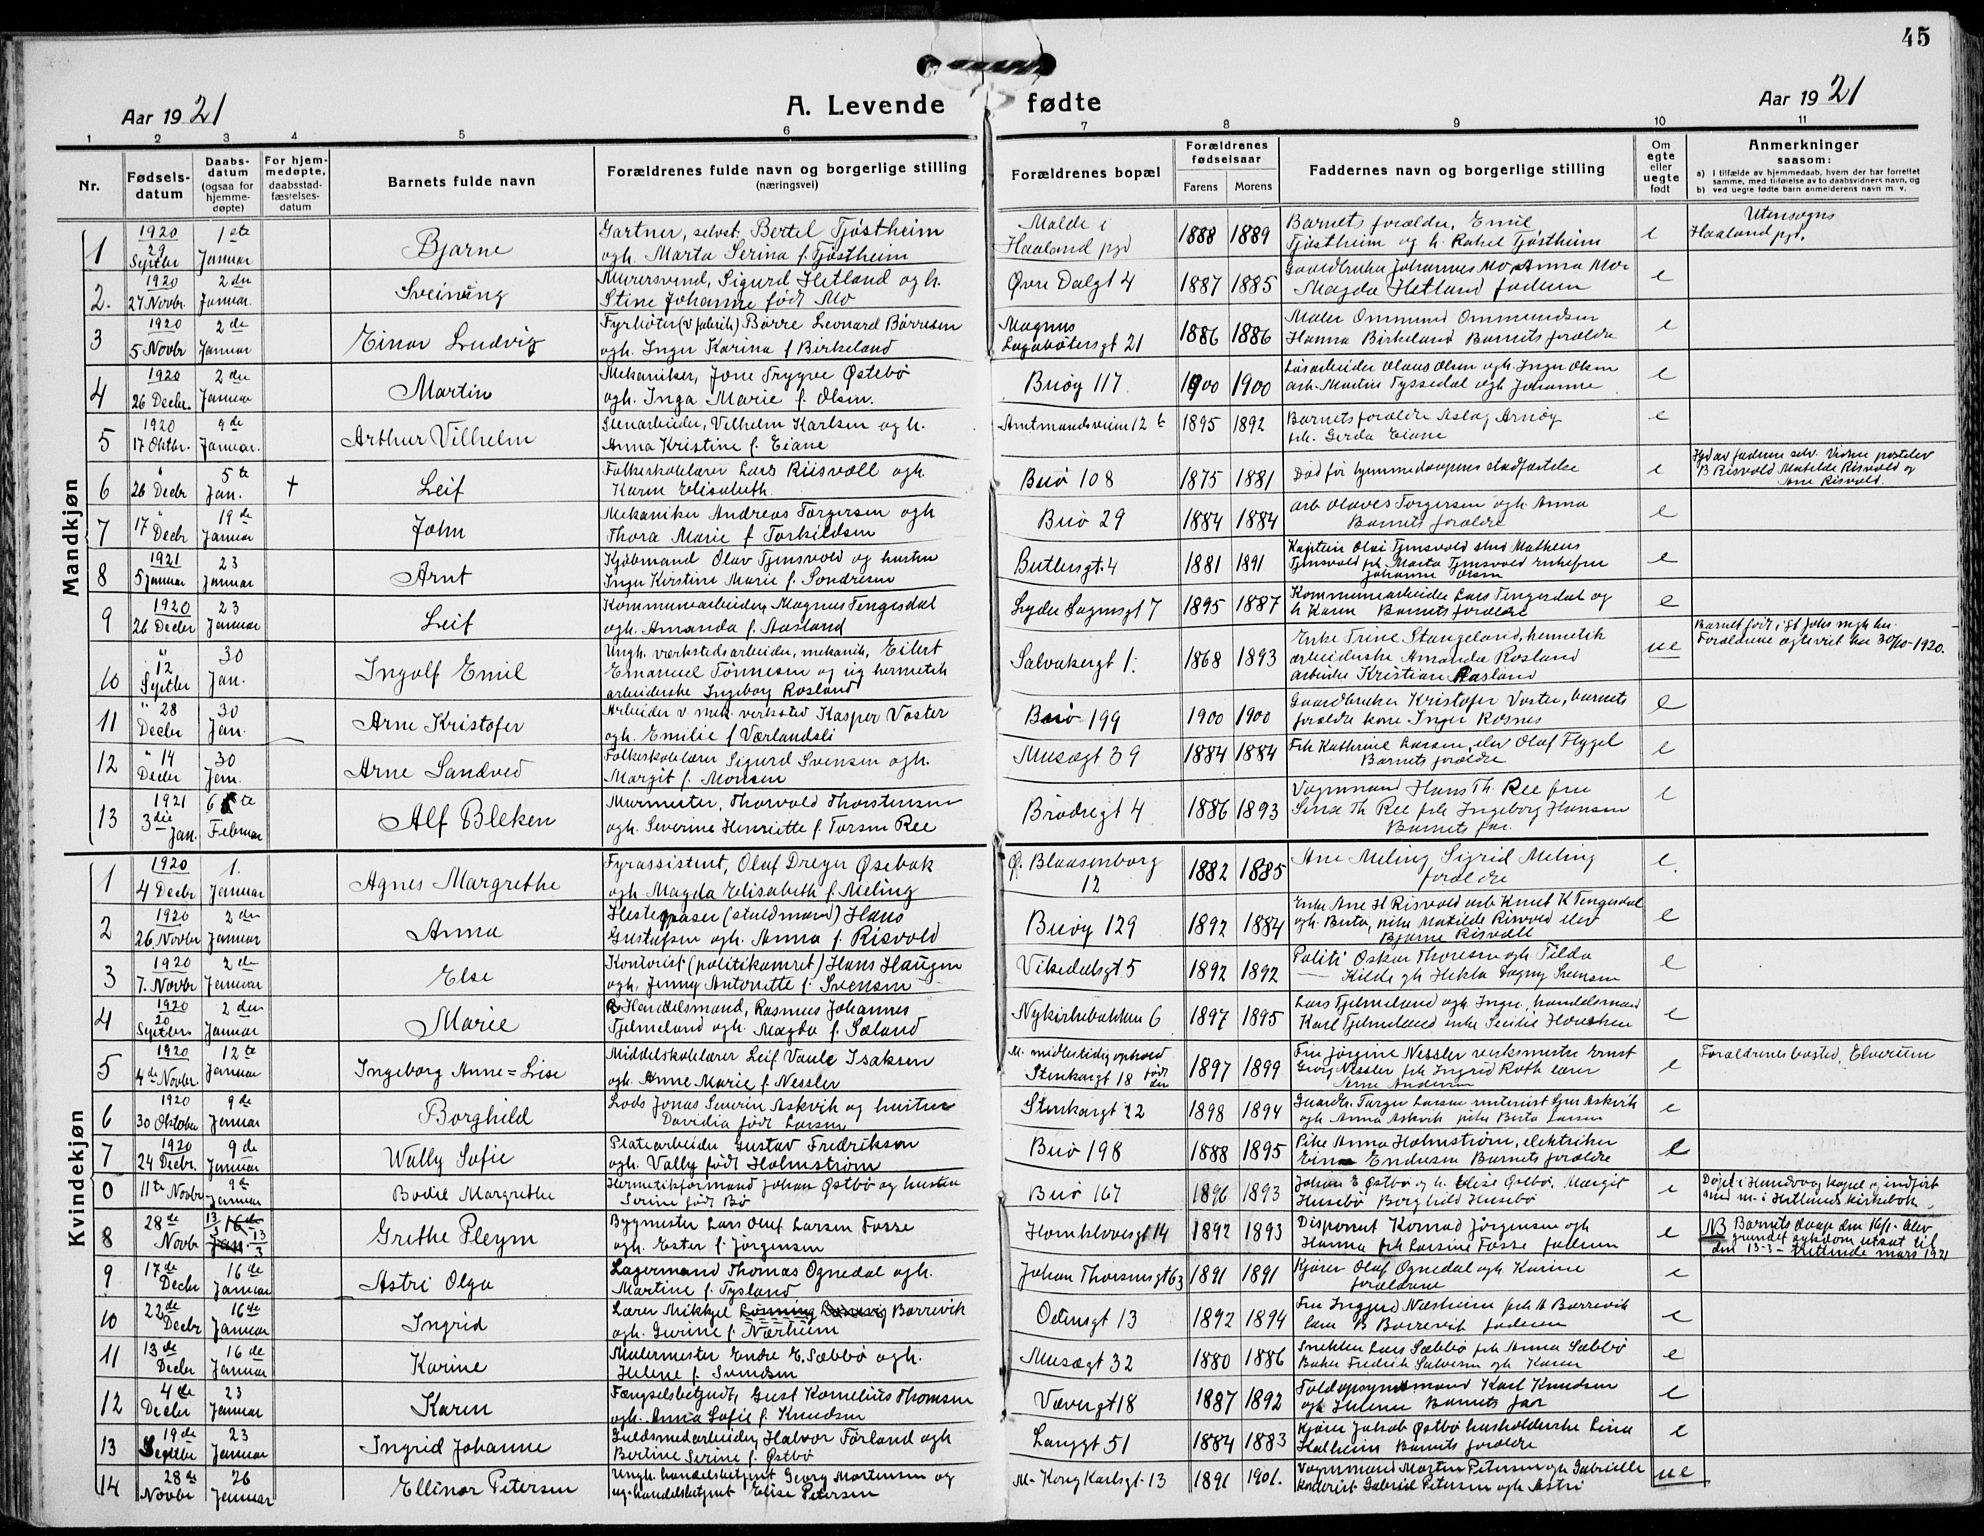 45
Aar 1921 A. Levende fødte Aar 1921
1 2 3 4 5 6 7 8 9 10 11
Nr. Fødselsdatum Daabsdatum (ogsaa for hjemmedøpte) For hjemmedøpte, daabsstadfæstelsesdatum Barnets fulde navn Forældrenes fulde navn og borgerlige stilling (næringsvei) Forældrenes bopæl Forældrenes fødselsaar Farens Morens Faddernes navn og borgerlige stilling Om egte eller uegte født Anmerkninger saasom:
a) I tilfælde av hjemmedaab, hvem der har forrettet samme, med tilføielse av to daabsvidners navn, og
b) ved uegte fødte barn anmelderens navn m. v.
Mandkjøn
1 1920 29 Septbr 1ste Januar Bjarne Gartner, selvst. Bertel Tjøstheim
ogh. Marta Serina f. Tjøstheim Malde i Haaland pgd 1888 1889 Barnets forældre, Emil
Tjøstheim og h. Rakel Tjøstheim e Utensogns
Haaland pgd.
2. 1920 27 Novbr. 2den Januar. Sveinung Murersvend, Sigurd Hetland og h.
Stine Johanne født Mo Øvre Dalgt 4 1887 1885 Gaardbruker Johannes Mo, Anna Mo
Magda Hetland faderen e
3 1920 5 Novbr 2de Januar Einar Ludvig Fyrbøter (v fabrik) Børre Leonard Børresen
ogh. Inger Karina f Birkeland Magnus Lagabøtersgt 21 1886 1886 Maler Ommund Ommundsen
Hanna Birkeland Barnets forældre e
4 1920 26 Decbr. 2den Januar Martin Mekaniker, Jone Trygve Østebø
ogh. Inga Marie f. Olsen. Buøy 117. 1900 1900 Løsarbeider Olaus Olsen ogh. Inger Olsen
arb. Martin Tyssedal ogh Johanne e
5 1920 17 Oktbr. 9de Januar. Arthur Vilhelm Stenarbeider, Vilhelm Karlsen og h.
Anna Kristine f. Eiane Amtmandsveien 12 b 1895 1892 Barnets forældre Aslag Arnøy
frk. Gerda Eiane e
6 " 26 Decbr 5te Jan. † Leif Folkeskolelærer Lars Riisvoll ogh.
Karen Elisabeth. Buø 108 1875 1881 Død før hjemmedaapens stadfæstelse e Hjd av faderen selv. Vidner postelev
B Risvold Matilde Risvold og
Ane Risvold.
7 " 17 Decbr 19de Januar John Mekaniker Andreas Torgersen ogh
Thora Marie f Torkildsen Buø 29 1884 1884 arb Olaves Torgersen ogh. Anna
Barnets forældre e
8 1921 5 januar 23 Januar Arnt Kjøbmand Olav Tjensvold og hustru
Inger Kirstine Marie f. Sondresen Butlersgt 4 1881 1891 Kaptein Olai Tjensvold stud Mathens
Tjensvold frk Marta Tjensvold Enkefru
Johanne Olsen e
9 1920 26 Decbr 23 Januar Leif Kommunearbeider, Magnus Tengesdal
ogh. Amanda f. Aasland Lyder Sagensgt 7 1895 1887 Kommunearbeider Lars Tengesdal og
h Karen Barnets forældre e
10 " 12 Septbr 30 Jan. Ingolf Emil Ungk. værkstedsarbeider, mekanik, Eilert
Emanuel Tønnesen og ug hermetik
arbeiderske Ingeborg Rosland Salvakergt 1. 1868 1893 Enke Trine Stangeland, hermetik
arbeiderske Amanda Rosland
arbeider Kristian Aasland ue Barnet født i St Johs
Forældrene egteviet her 30/10-1920.
11 " 28 Decbr 30 Jan. Arne Kristofer Arbeider v. mek. verksted Kasper Voster
ogh. Emilie f Værlandsli Buø 199 1900 1900 Gaardbruker Kristofer Voster, barnets
forældre kone Inger Rosnes e
12 " 14 Decbr 30 Jan. Arne Sandved Folkeskolelærer Sigurd Svensen ogh.
Margit f. Monsen Musægt 39 1884 1884 Frk Kathrine Larsen, elev Olaf Flygel
Barnets forældre e
13 1921 3die Jan. 6te Februar Alf Bleken Murmester, Thorvald Thorstensen
ogh. Severine Henriette f. Torsen Ree Brødregt 4 1886 1893 Vognmand Hans Th. Ree fru
Sina Th Ree frk Ingeborg Hansen
Barnets far. e
Kvindekjøn
1 1920 4 Decbr 1. Januar Agnes Margrethe Fyrassistent, Olaf Dreyer Øsebak
ogh. Magda Elisabeth f Meling Ø. Blaasenborg 12 1882 1885 Ane Meling Sigrid Meling
forældre e.
2 1920 26 Novbr 2den Januar Anna Hestepasser (staldmand) Hans
Gustafsen ogh. Anna f. Risvold Buøy 129 1892 1884 Enke Ane H Risvold arb Knut K Tengesdal
ogh. Berta, pike Matilde Risvold elev
Bjarne Risvoll e
3 1920 7. Novbr 2de Januar Else Kontorist (politikamret) Hans Haugen
ogh. Jenny Antonette f. Svensen Vikedalsgt 5 1892 1892 Politi Oskar Thoresen ogh Tilda
Kilde gh Hekla Dagny Svensen e
4 1920 20 Septbr. 2den Januar Marie Handelsmand, Rasmus Johannes
Tjelmeland ogh. Magda f. Sæland Nykirkebakken 6 1897 1895 Lars Tjelmeland ogh. Inger, handelsmand
Karl Tjelmeland enke Serine Hausken e
5 1920 4de Novbr 12te Januar Ingeborg Anne=Lise Middelskolelærer Leif Vaule Isaksen
ogh. Anne Marie f. Nessler M. midlertidig ophold Stenkargt 18 født der 1897 1899 Fru Jørgine Nessler verksmester Ernst
Georg Nessler frk Ingrid Roth lærer
Arne Andersen e Forældrenes bosted, Elverum
6 1920 30 Oktober 9de Januar Borghild Lods Jonas Severin Askvik og hustru
Davidia født Larsen Stenkargt 22 1898 1894 Gaardbr. Torger Larsen Askvik
ogh. Anna Askvik pike Berta Larsen e
7 1920 24 Decbr. 9de Januar Wally Sofie Platearbeider Gustav Fredriksen
ogh. Vally født Holmstrøm Buø 198 1888 1895 Pike Anna Holmstrøm, elektriker
Einar Endresen Barnets forældre e
0 11te Novbr 9de Januar Bodil Margrethe Hermetikformand Johan Østbø og hustru
Serine født Bø Buø 167 1896 1893 Johan E Østbø og h. Elise Østbø, Margit
Husebø Borghild Husebø e Døpt i Hundvaag kapel og indført
med nr. i Hetlands kirkebok.
8 28de Novbr 13/3 16de Jan. 13/3 Grethe Pleym Bygmester Lars Olaf Larsen Fosse
ogh. Ester f. Jørgensen Homklovesgt 14 1892 1893 Disponent Konrad Jørgensen ogh
Hanna frk Larsine Fosse faderen e NB Barnets daap den blev
grundet sykdom utsat til
den 13-3- mars 1921
9 17de Decbr 16de Januar Astri Olga Lagermand Thomas Ognedal ogh.
Martine f. Tysland Johan Thorsensgt 63 1891 1891 Kjører Olaf Ognedal ogh. Karine
forældrene e
10 22de Decbr 16de Januar Ingrid Lærer Mikkjel Rønning Børrevig Børrevik
ogh. Gurine f. Nærheim Odensgt 13 1892 1894 Fru Ingjerd Nærheim frk A Børrevik
lærer B Børrevik faderen e
11 13de Decbr 16de Januar Karine Malermester Endre E. Sæbbø ogh.
Helene f. Svendsen Musægt 32 1880 1886 Snekker Lars Sæbbø frk Anna Sæbbø
Baker Fredrik Salvesen ogh Karen e
12 4de Decbr 23 Januar Karen Fængselsbetjent, Gust Kornelius Thomsen
ogh. Anna Sofie f. Knudsen Vævergt 18 1887 1892 Toldopsynsmand Karl Knudsen
ogh Helene Barnets far e
13 19de Septbr 23 Januar Ingrid Johanne Guldsmedarbeider, Halvor Førland ogh
Bertine Serine f. Østbø Langgt 51 1884 1883 Kjører Jakob Østbø husholderske Lina
Halheim Barnets forældre e
14 28de Novbr 26 Januar Ellinor Petersen Ungk. handelsbetjent Georg Mortensen og
ug. handelsbetjent Elise Petersen M- Kong Karlsgt 13 1891 1901. Vognmand Morten Petersen ogh Gabrielle
Kontorist Gabriel Petersen ogh Astri ue